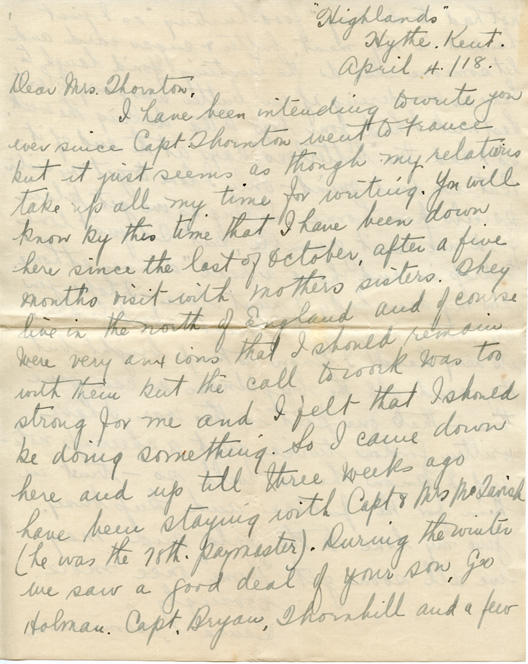 "Highlands"
Hythe. Kent.
April 4./18.
Dear Mrs. Thornton,
I have been intending to write you
ever since Capt Thornton went to France
but it just seems as though my relations
take up all my time for writing. You will
know by this time that I have been down
here since the last of October, after a five
months visit with mothers sisters. They
live in the north of England and of course
were very anxious that I should remain
with them but the call to work was too
strong for me and I felt that I should
be doing something. So I came down
here and up till three weeks ago
have been staying with Capt & Mrs McTavish
(he was the 70th. paymaster). During the winter
we saw a good deal of your son,
Holman. Capt. Bryan, Thornhill and a few